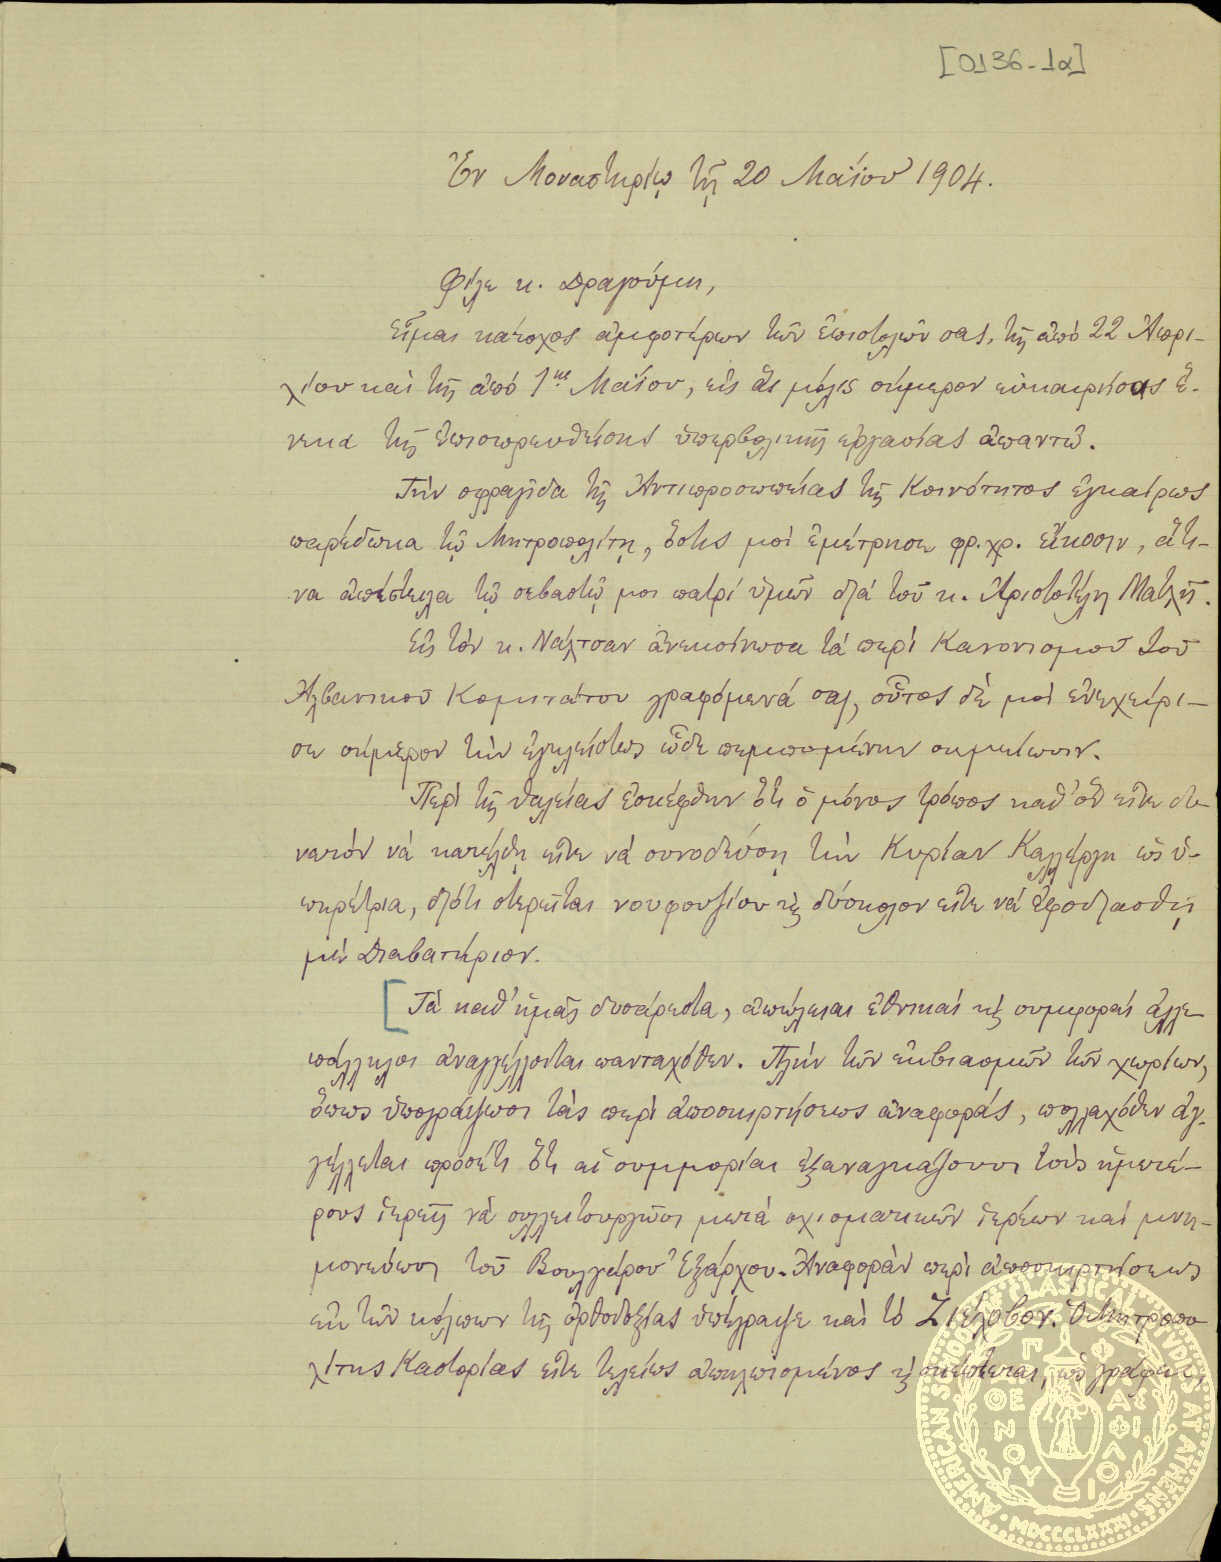 [0136-1α]
Ἐν Μοναστηρίῳ τῇ 20 Μαΐου 1904.
Φίλε κ. Δραγούμη,
Εἶμαι κάτοχος ἀμφοτέρων τῶν ἐπιστολῶν σας, τῆς ἀπό 22 Ἀπρι-
λίου καί τῆς ἀπό 1ης Μαΐου, εἰς ἅς μόλις σήμερον εὐκαιρήσας ἕ-
νεκα τῆς ἐπισωρευθείσης ὑπερβολικῆς ἐργασίας ἀπαντῶ.
Τήν σφραγῖδα τῆς Ἀντιπροσωπείας τῆς Κοινότητος ἐγκαίρως
παρέδωκα τῷ Μητροπολίτῃ, ὅστις μοί ἐμέτρησε φρ. χρ. εἴκοσιν, ἅτι-
να ἀπέστειλα τῷ σεβαστῷ μοι πατρί ὑμῶν διά τοῦ κ. Ἀριστοτέλη Ματλῆ.
Εἰς τόν κ. Νάλτσαν ἀνεκοίνωσα τά περί Κανονισμοῦ τοῦ
Ἀλβανικοῦ Κομιτάτου γραφόμενά σας, οὗτος δέ μοί ἐνεχείρι-
σε σήμερον τήν ἐγκλείστως ὧδε πεμπομένην σημείωσιν.
Περί τῆς θαλείας ἐσκέφθην ὅτι ὁ μόνος τρόπος καθ' ὅν εἶνε δυ-
νατόν νά κατέλθῃ εἶνε νά συνοδεύσῃ τήν Κυρίαν Καλλέργη ὡς ὑ-
πηρέτρια, διότι στερεῖται νουφουζίου κ δύσκολον εἶνε νά ἐφοδιασθῇ
μέ Διαβατήριον.
[Τά καθ' ἡμᾶς δυσάρεστα, ἀπώλειαι ἐθνικαί κ συμφοραί ἀλλε-
πάλληλοι ἀναγγέλλονται πανταχόθεν. Πλήν τῶν ἐκβιασμῶν τῶν χωρίων,
ὅπως ὑπογράψωσι τάς περί ἀποσκιρτήσεως ἀναφοράς, πολλαχόθεν ἀγ-
γέλλεται προσέτι ὅτι αἱ συμμορίαι ἐξαναγκάζουσι τούς ἡμετέ-
ρους ἱερεῖς νά συλλειτουργῶσι μετά σχισματικῶν ἱερέων καί μνη-
μονεύωσι τοῦ Βουλγάρου Ἐξάρχου. Ἀναφοράν περί ἀποσκιρτήσεως
ἐκ τῶν κόλπων τῆς ὀρθοδοξίας ὑπέγραψε καί τό Ζιέλοβον. Ὁ Μητροπο-
λίτης Καστορίας εἶνε τελείως ἀπηλπισμένος κ σκέπτεται, ὡς γράφει,
AMERICAN SCHOOL OF CLASSICAL STUDIES AT ATHENS
MDCCCLXXXI